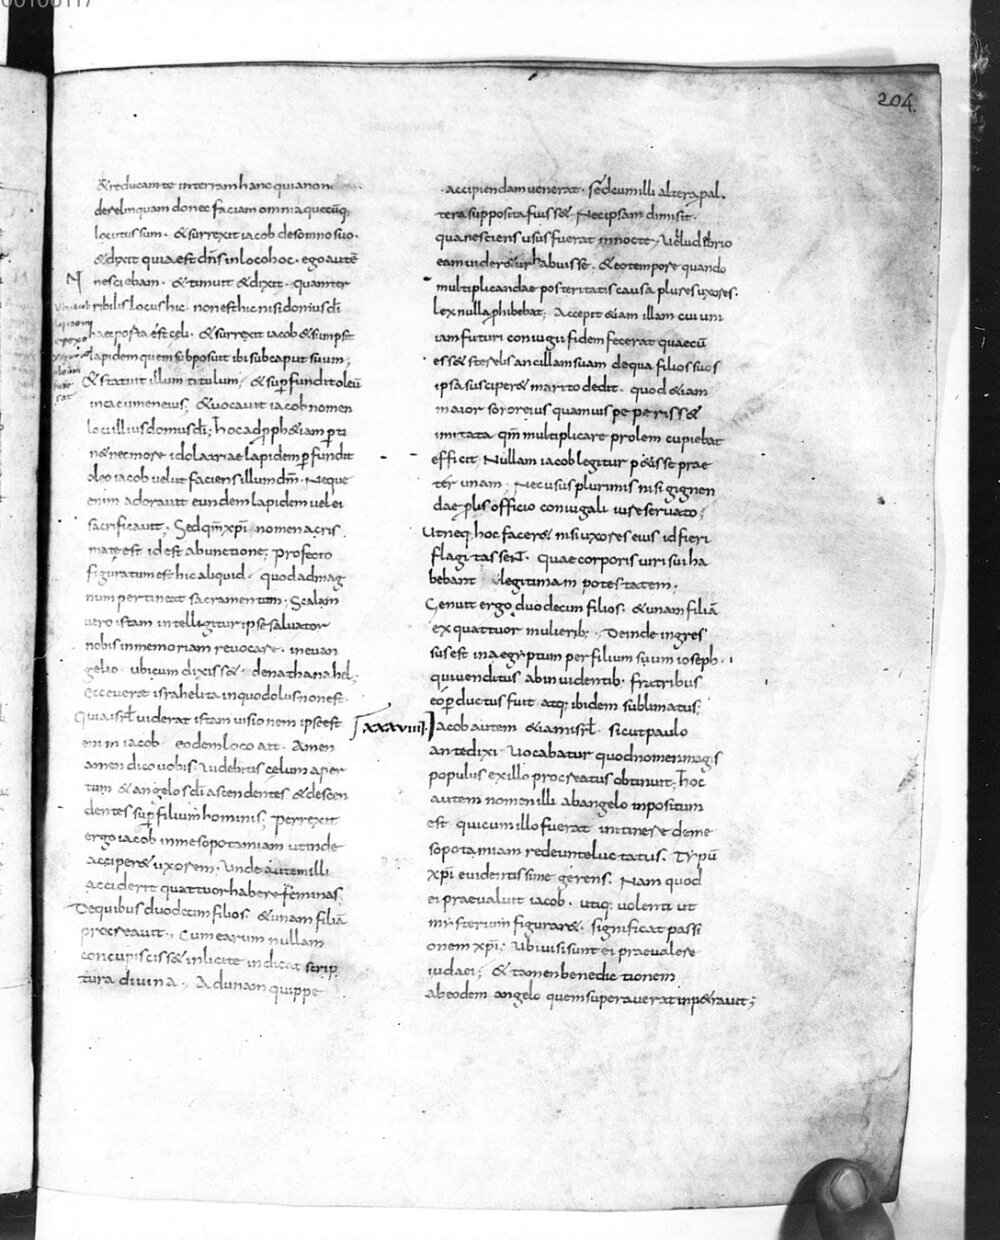 204
& reducam te in terram hanc quia non
derelinquam donec faciam omnia quecūq;
locutus sum. & surrexit iacob de somno suo.
& dixit quia est dn̄s in loco hoc. ego autē
nesciebam. & timuit & dixit. quam ter
ribilis locus hic. non est hic nisi domus dī
haec porta est celi. & surrexit iacob & sumpsit
lapidem quem subposuit ibi sub caput suum;
& statuit illum titulum; & sup fundit oleū
in cacumen eius; & vocavit iacob nomen
loci illius domus dī; hoc ad pph&iam pti
n& nec more idolatriae lapidem pfundit
oleo iacob velut faciens illum dm̄. Neque
enim adoravit eundem lapidem vel ei
sacrificavit; Sed qm̄ xp̄i nomen a cris
mate est id est ab unctione; profecto
figuratum est hic aliquid. quod ad mag
num pertineat sacramentum; Scalam
vero istam intelligitur ipse salvator
nobis in memoriam revocare. in evan
gelio. ubi cum dixiss&. de nathanahel.
ecce vere israhelita in quo dolus non est.
Quia isrl̄ viderat istam visionem ipse est
enim iacob. eodem loco ait. Amen
amen dico vobis. videbitis celum aper
tum & angelos dī ascendentes & descen
dentes sup filium hominis; perrexit
ergo iacob in mesopotamiam ut inde
acciper& uxorem. Unde autem illi
acciderit quattuor habere feminas.
De quibus duodecim filios. & unam filiā
procreavit; cum earum nullam
concupisciss& inlicite indicat scrip
tura divina. Ad unam quippe
accipiendam venerat. sed cum illi altera pal
tera supposita fuiss&. Nec ipsam dimisit.
qua nesciens usus fuerat in nocte. Ne ludibrio
eam vider&ur habuisse. & eo tempore quando
multiplicandae posteritatis causa plures uxores.
lex nulla phibebat; Accepit &iam illam cui uni
iam futuri coniugii fidem fecerat quae cū
ess& sterelis ancillam suam de qua filios suos
ipsa susciper& marito dedit. quod &iam
maior soror eius quamvis peperiss&
imitata qm̄ multiplicare prolem cupiebat
efficit; Nullam iacob legitur p&isse prae
ter unam; Nec usus plurimis nisi gignen
dae plis officio coniugali iure servato;
Ut neq; hoc facer& nisi uxores eius id fieri
flagitassent. Quae corporis viri sui ha
bebant legitimam potestatem.
Genuit ergo duodecim filios. & unam filiā
ex quattuor mulierib;. Deinde ingres
sus est in aegyptum per filium suum ioseph.
qui venditus ab invidentib. fratribus
eo pductus fuit atq; ibidem sublimatus;
[xxxviiii.] Iacob autem &iam isrl̄. sicut paulo
ante dixi. vocabatur quod nomen magis
populus ex illo procreatus obtinuit, hoc
autem nomen illi ab angelo inpositum
est. qui cum illo fuerat in itinere de me
sopotamiam redeunte luctatus. Typū
xp̄i evidentissime gerens. Nam quod
ei praevaluit iacob. utiq; volenti ut
mysterium figurar&. significat passi
onem xp̄i; ubi visi sunt ei praevalere
iudaei; & tamen benedictionem
ab eodem angelo quem superaverat inp&ravit;